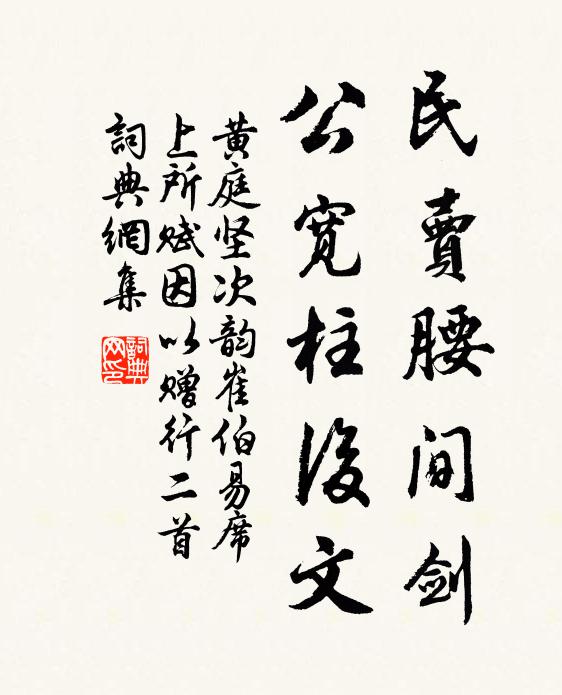 民賣腰間劍
公寬柱後文
黄庭坚次韵崔伯易席
上所赋因以赠行二首
詞典網集
詞典
网印